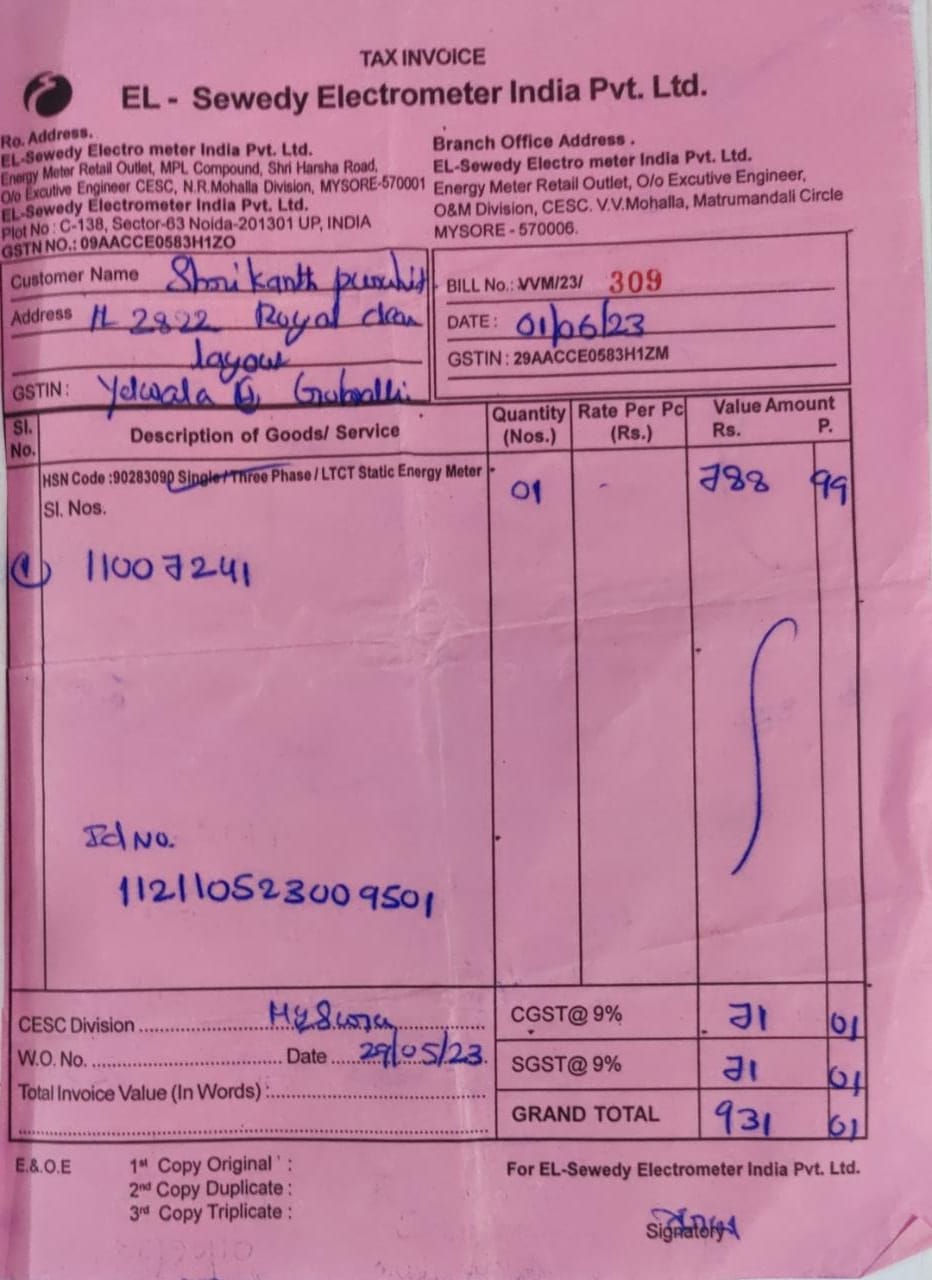 TAX INVOICE
EL - Sewedy Electrometer India Pvt. Ltd.
Ro. Address.
EL-Sewedy Electro meter India Pvt. Ltd.
Energy Meter Retail Outlet, MPL Compound, Shri Harsha Road,
O/o Excutive Engineer CESC, N.R.Mohalla Division, MYSORE-570001
EL-Sewedy Electrometer India Pvt. Ltd.
Plot No : C-138, Sector-63 Noida-201301 UP, INDIA
GSTN NO.: 09AACCE0583H1ZO
Branch Office Address .
EL-Sewedy Electro meter India Pvt. Ltd.
Energy Meter Retail Outlet, O/o Excutive Engineer,
O&M Division, CESC. V.V.Mohalla, Matrumandali Circle
MYSORE - 570006.
Customer Name Shrikanth purohit
Address 2822 Royal
layout
GSTIN : Yelwala
BILL No.: VVM/23/ 309
DATE : 01/06/23
GSTIN : 29AACCE0583H1ZM
Sl. No. Description of Goods/ Service Quantity (Nos.) Rate Per Pc (Rs.) Value Amount Rs. P.
HSN Code :90283090 Single / Three Phase / LTCT Static Energy Meter 01 - 788 99
Sl. Nos.
1 11007241
Id No.
112110523009501
CESC Division Mysuru CGST@ 9% 71 01
W.O. No. Date 29/05/23 SGST@ 9% 71 01
Total Invoice Value (In Words) : GRAND TOTAL 931 01
E.&.O.E 1st Copy Original ' :
2nd Copy Duplicate :
3rd Copy Triplicate :
For EL-Sewedy Electrometer India Pvt. Ltd.
Signatory